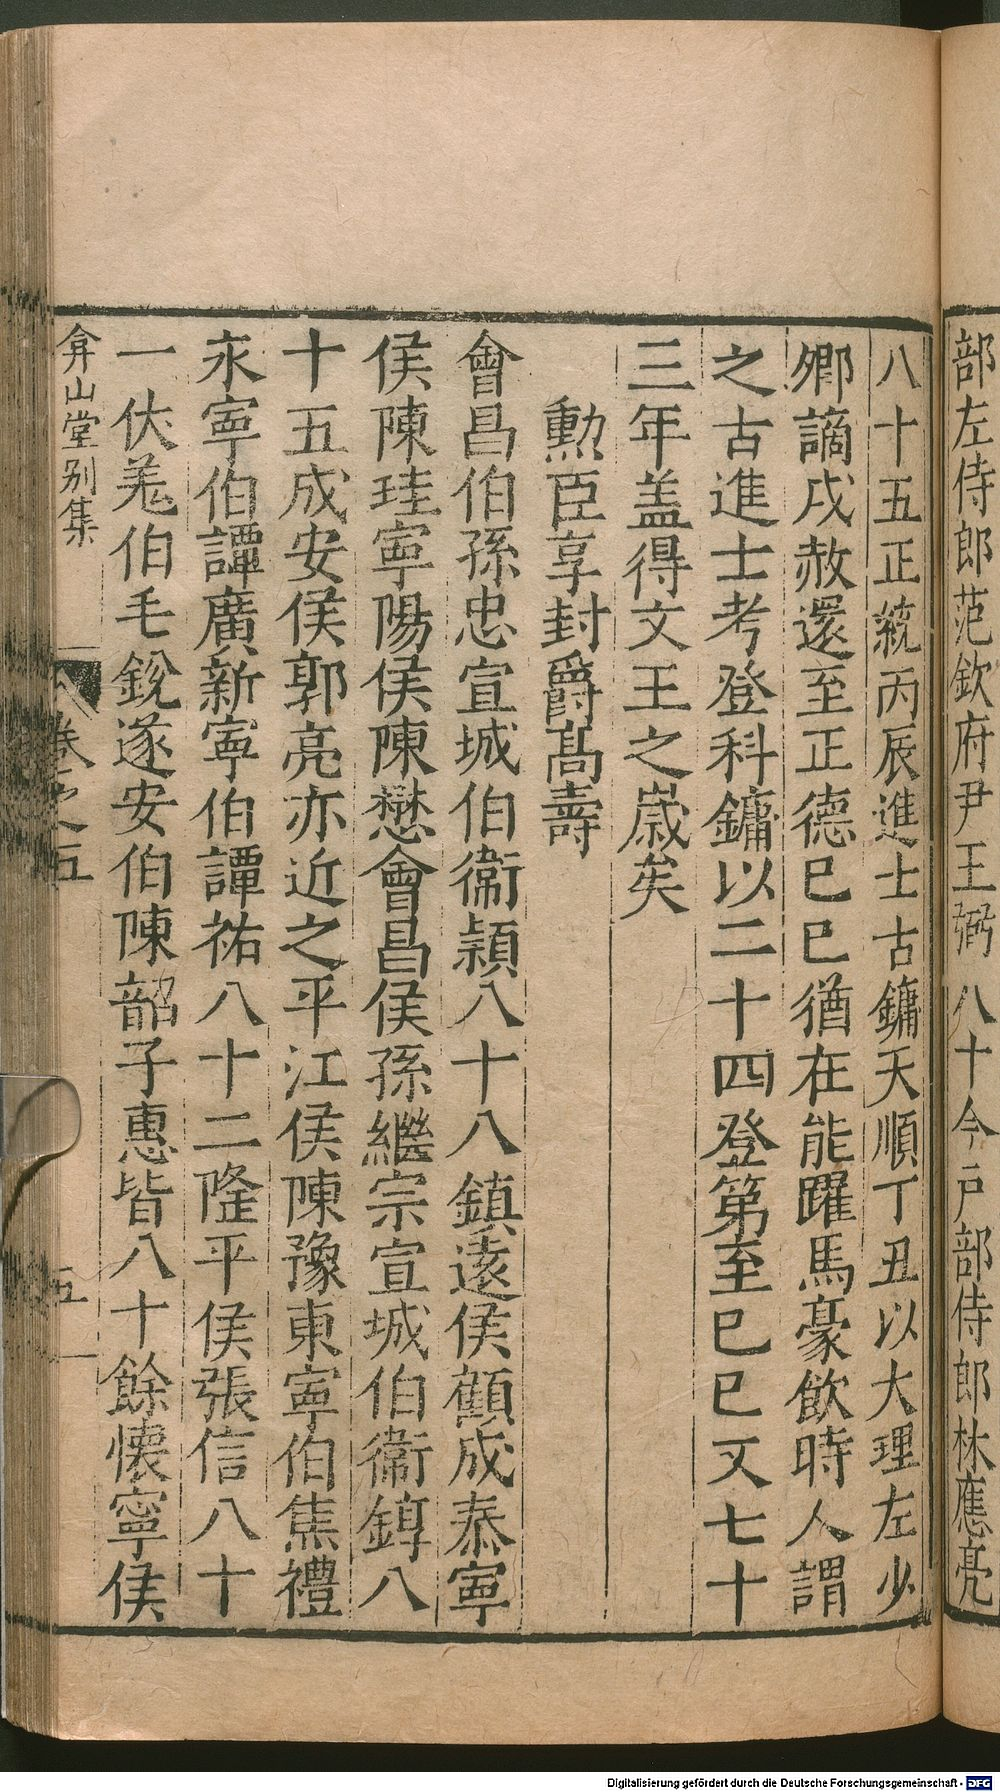 部左侍郎范欽府尹王弼八十今户部侍郎林應亮
八十五正統丙辰進士古鏞天順丁丑以大理左少
卿謫戍赦還至正德已巳猶在能躍馬豪飲時人謂
之古進士考登科鏞以二十四登第至巳巳又七十
三年盖得文王之歲矣
勲臣享封爵髙壽
會昌伯孫忠宣城伯衛潁八十八鎮遠侯顧成泰寧
侯陳珪寧陽侯陳懋會昌侯孫繼宗宣城伯衛錞八
十五成安侯郭亮亦近之平江侯陳豫東寧伯焦禮
永寧伯譚廣新寧伯譚祐八十二隆平侯張信八十
一伏羌伯毛銳遂安伯陳韶子惠皆八十餘懷寧侯
弇山堂别集 卷之五 五
Digitalisierung gefördert durch die Deutsche Forschungsgemeinschaft - DFG